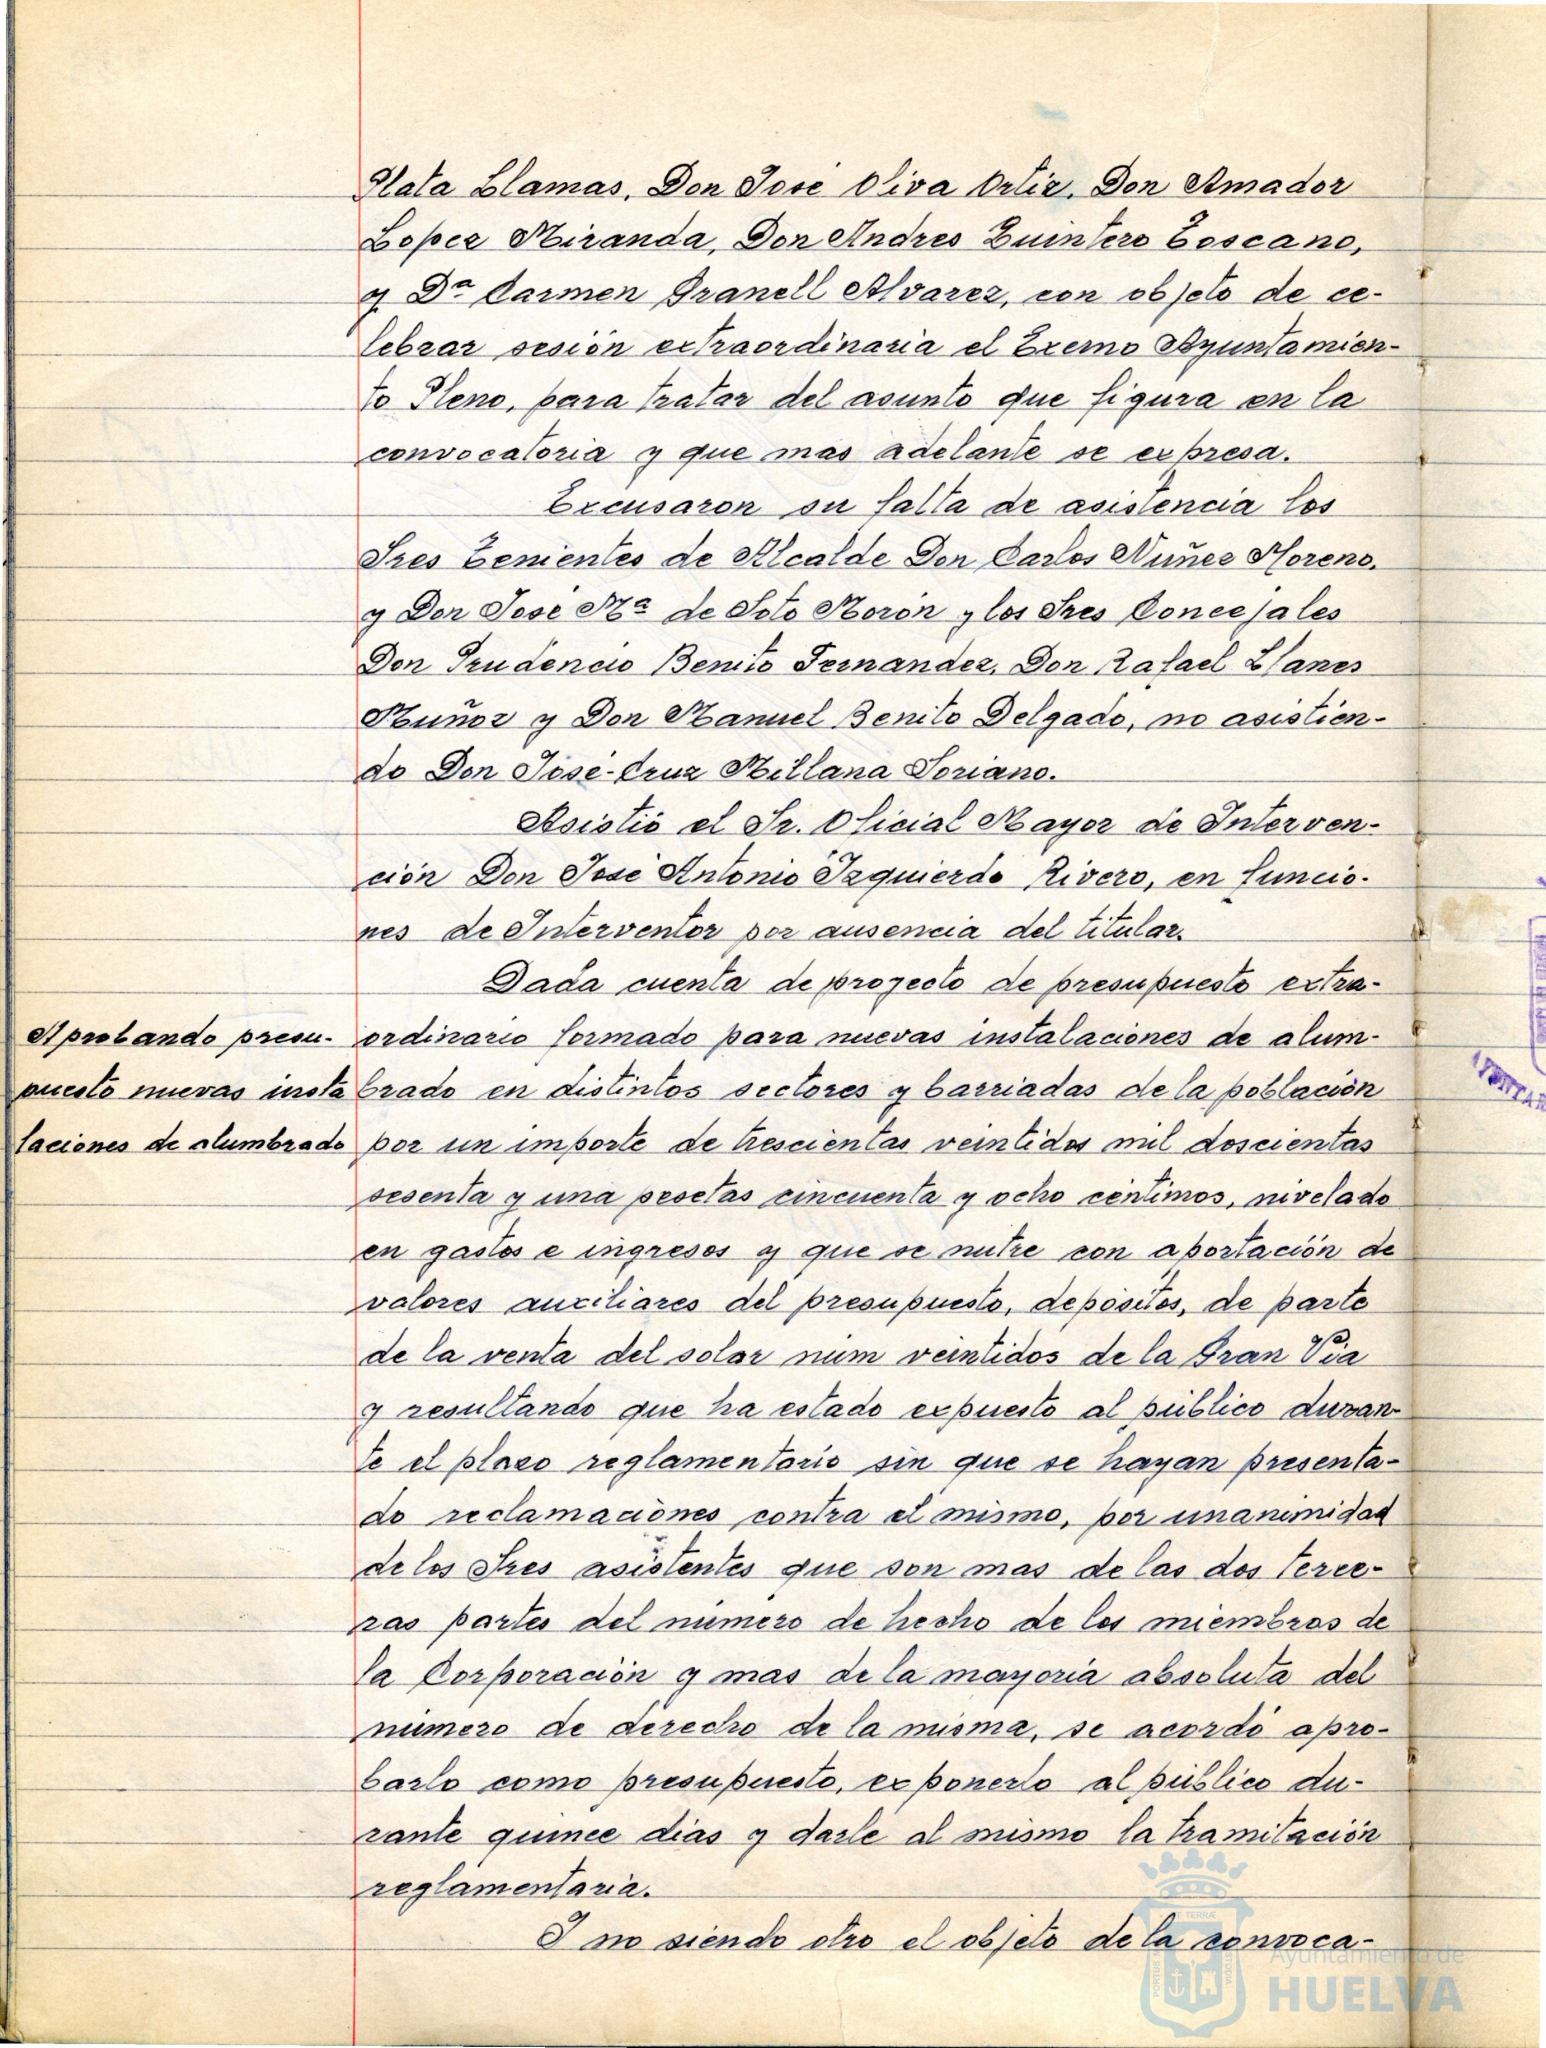 Plata Llamas, Don José Oliva Ortiz, Don Amador
Lopez Miranda, Don Andres Quintero Toscano,
y Dª Carmen Granell Alvarez, con objeto de ce-
lebrar sesión extraordinaria el Excmo Ayuntamien-
to Pleno, para tratar del asunto que figura en la
convocatoria y que mas adelante se expresa.
Excusaron su falta de asistencia los
Sres Tenientes de Alcalde Don Carlos Nuñez Moreno,
y Don José Mª de Soto Morón y los Sres Concejales
Don Prudencio Benito Fernandez, Don Rafael Llanes
Muñoz y Don Manuel Benito Delgado, no asistien-
do Don José-Cruz Millana Soriano.
Asistió el Sr. Oficial Mayor de Interven-
ción Don José Antonio Izquierdo Rivero, en funcio-
nes de Interventor por ausencia del titular.
Dada cuenta de proyecto de presupuesto extra-
Aprobando presu-
puesto nuevas insta
laciones de alumbrado
ordinario formado para nuevas instalaciones de alum-
brado en distintos sectores y barriadas de la población
por un importe de trescientas veintidos mil doscientas
sesenta y una pesetas cincuenta y ocho céntimos, nivelado
en gastos e ingresos y que se nutre con aportación de
valores auxiliares del presupuesto, depósitos, de parte
de la venta del solar num veintidos de la Gran Via
y resultando que ha estado expuesto al público duran-
te el plazo reglamentario sin que se hayan presenta-
do reclamaciones contra el mismo, por unanimidad
de los Sres asistentes que son mas de las dos terce-
ras partes del número de hecho de los miembros de
la Corporación y mas de la mayoria absoluta del
número de derecho de la misma, se acordó apro-
barlo como presupuesto, exponerlo al público du-
rante quince dias y darle al mismo la tramitación
reglamentaria.
I no siendo otro el objeto de la convoca-
Ayuntamiento de
HUELVA